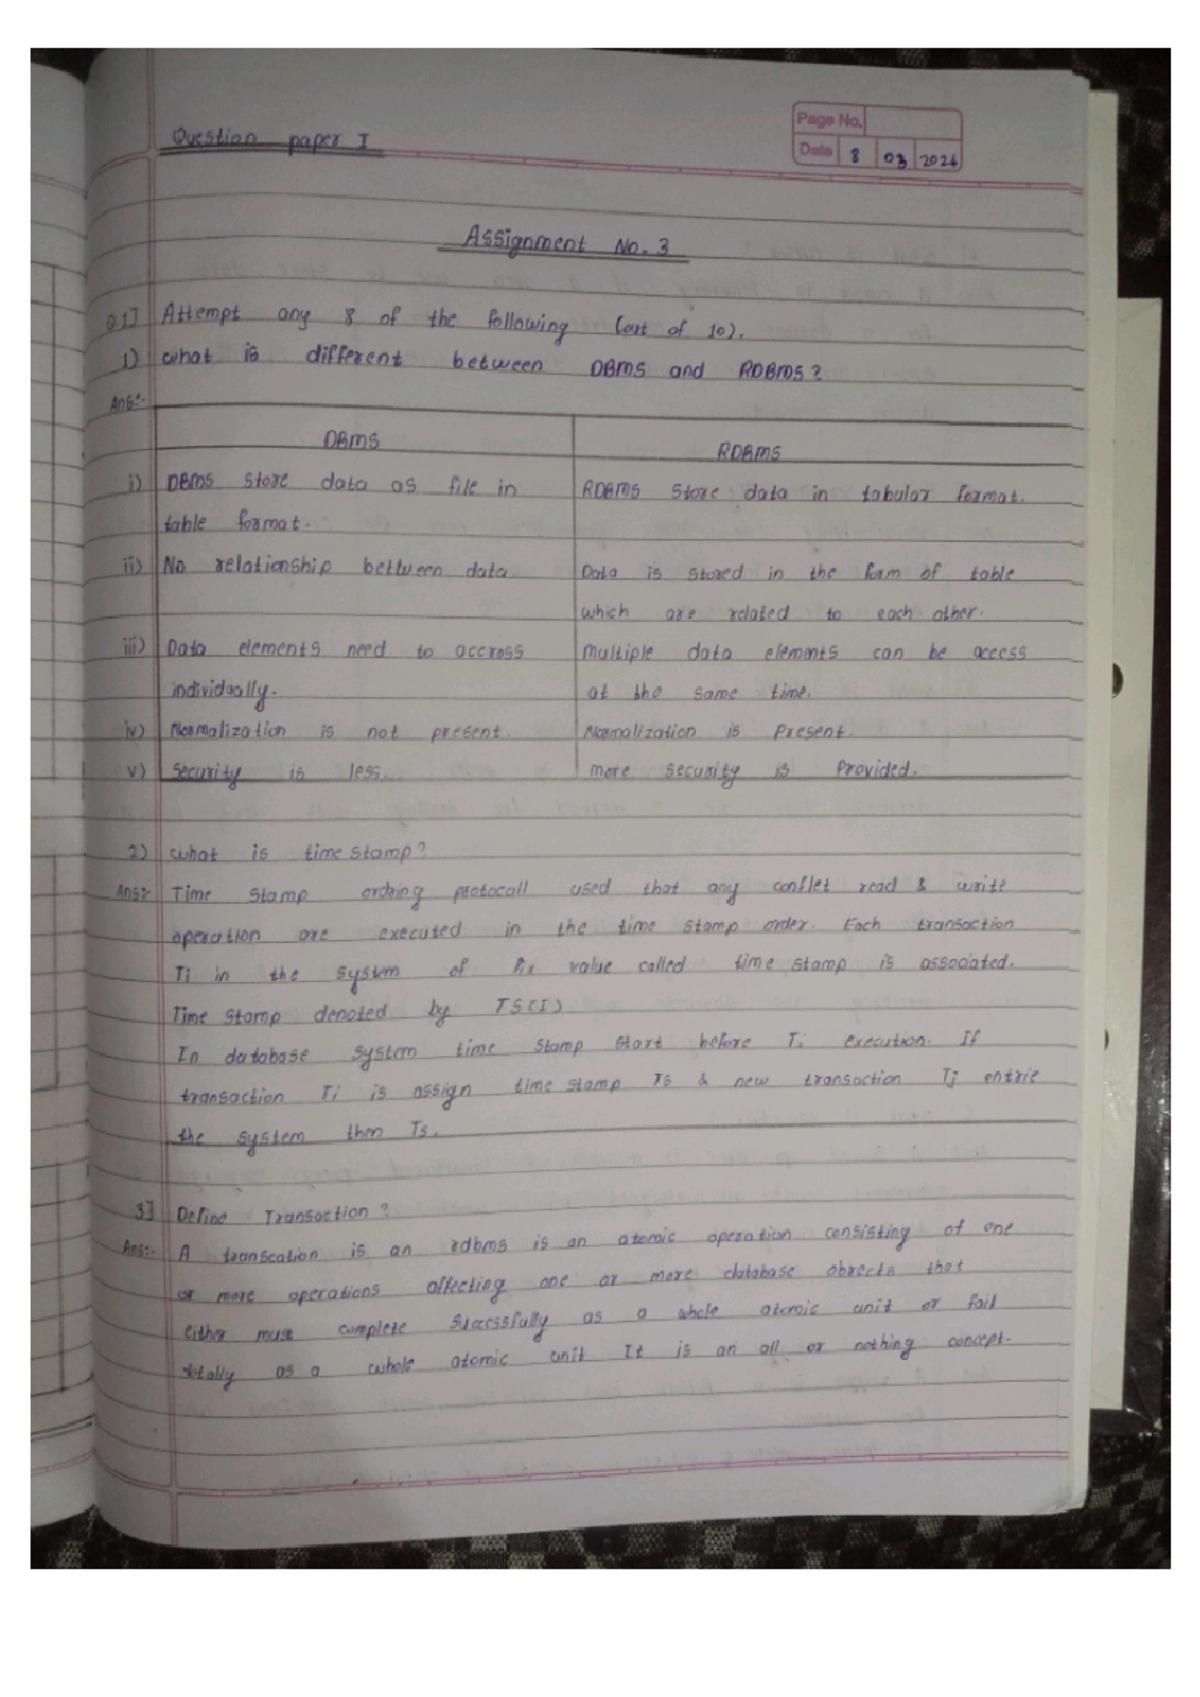 Question paper I
Page No.
Date 8 03 2024
Assignment No. 3
Q.1] Attempt any 8 of the following (out of 10).
1) what is different between DBMS and RDBMS?
Ans:-
DBMS RDBMS
i) DBMS store data as file in RDBMS store data in tabular format.
table format.
ii) No relationship bettween data. Data is stored in the form of table
which are related to each other.
iii) Data elements need to accress multiple data elements can be access
individually. at the same time.
iv) Normalization is not present. Normalization is present.
v) Security is less. more security is Provided.
2) what is time stamp?
Ans:- Time stamp ordring protocall used that any conflet read & write
operation are executed in the time stamp order. Each transaction
Ti in the system of value called time stamp is associated.
Time stamp denoted by TS(I)
In database system time stamp start before Ti execution. If
transaction Ti is assign time stamp Ts & new transaction Tj entrie
the system then Ts.
3] Define Transaction?
Ans:- A transcation is an rdbms is an atomic operation consisting of one
or more operations affecting one or more database objects that
either must complete successfully as a whole atomic unit or fail
totally as a whole atomic unit It is an all or nothing concept.